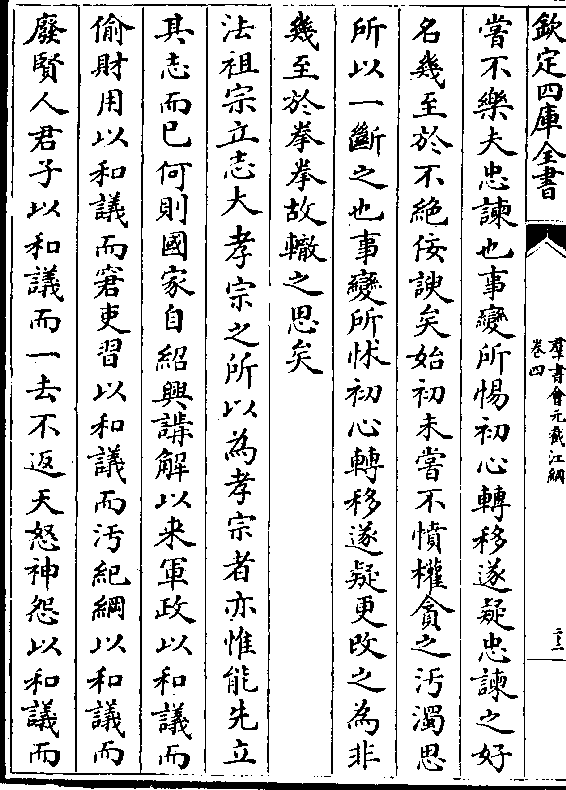 欽定四庫全書
羣書會元截江網
卷四
二十二
嘗不樂夫忠諫也事變所惕初心轉移遂疑忠諫之好
名幾至於不絶佞諛矣始初未嘗不憤權貪之汚濁思
所以一斷之也事變所怵初心轉移遂疑更改之為非
幾至於拳拳故轍之思矣
法祖宗立志大孝宗之所以為孝宗者亦惟能先立
其志而已何則國家自紹興講解以来軍政以和議而
偷財用以和議而窘吏習以和議而汚紀綱以和議而
廢賢人君子以和議而一去不返天怒神怨以和議而